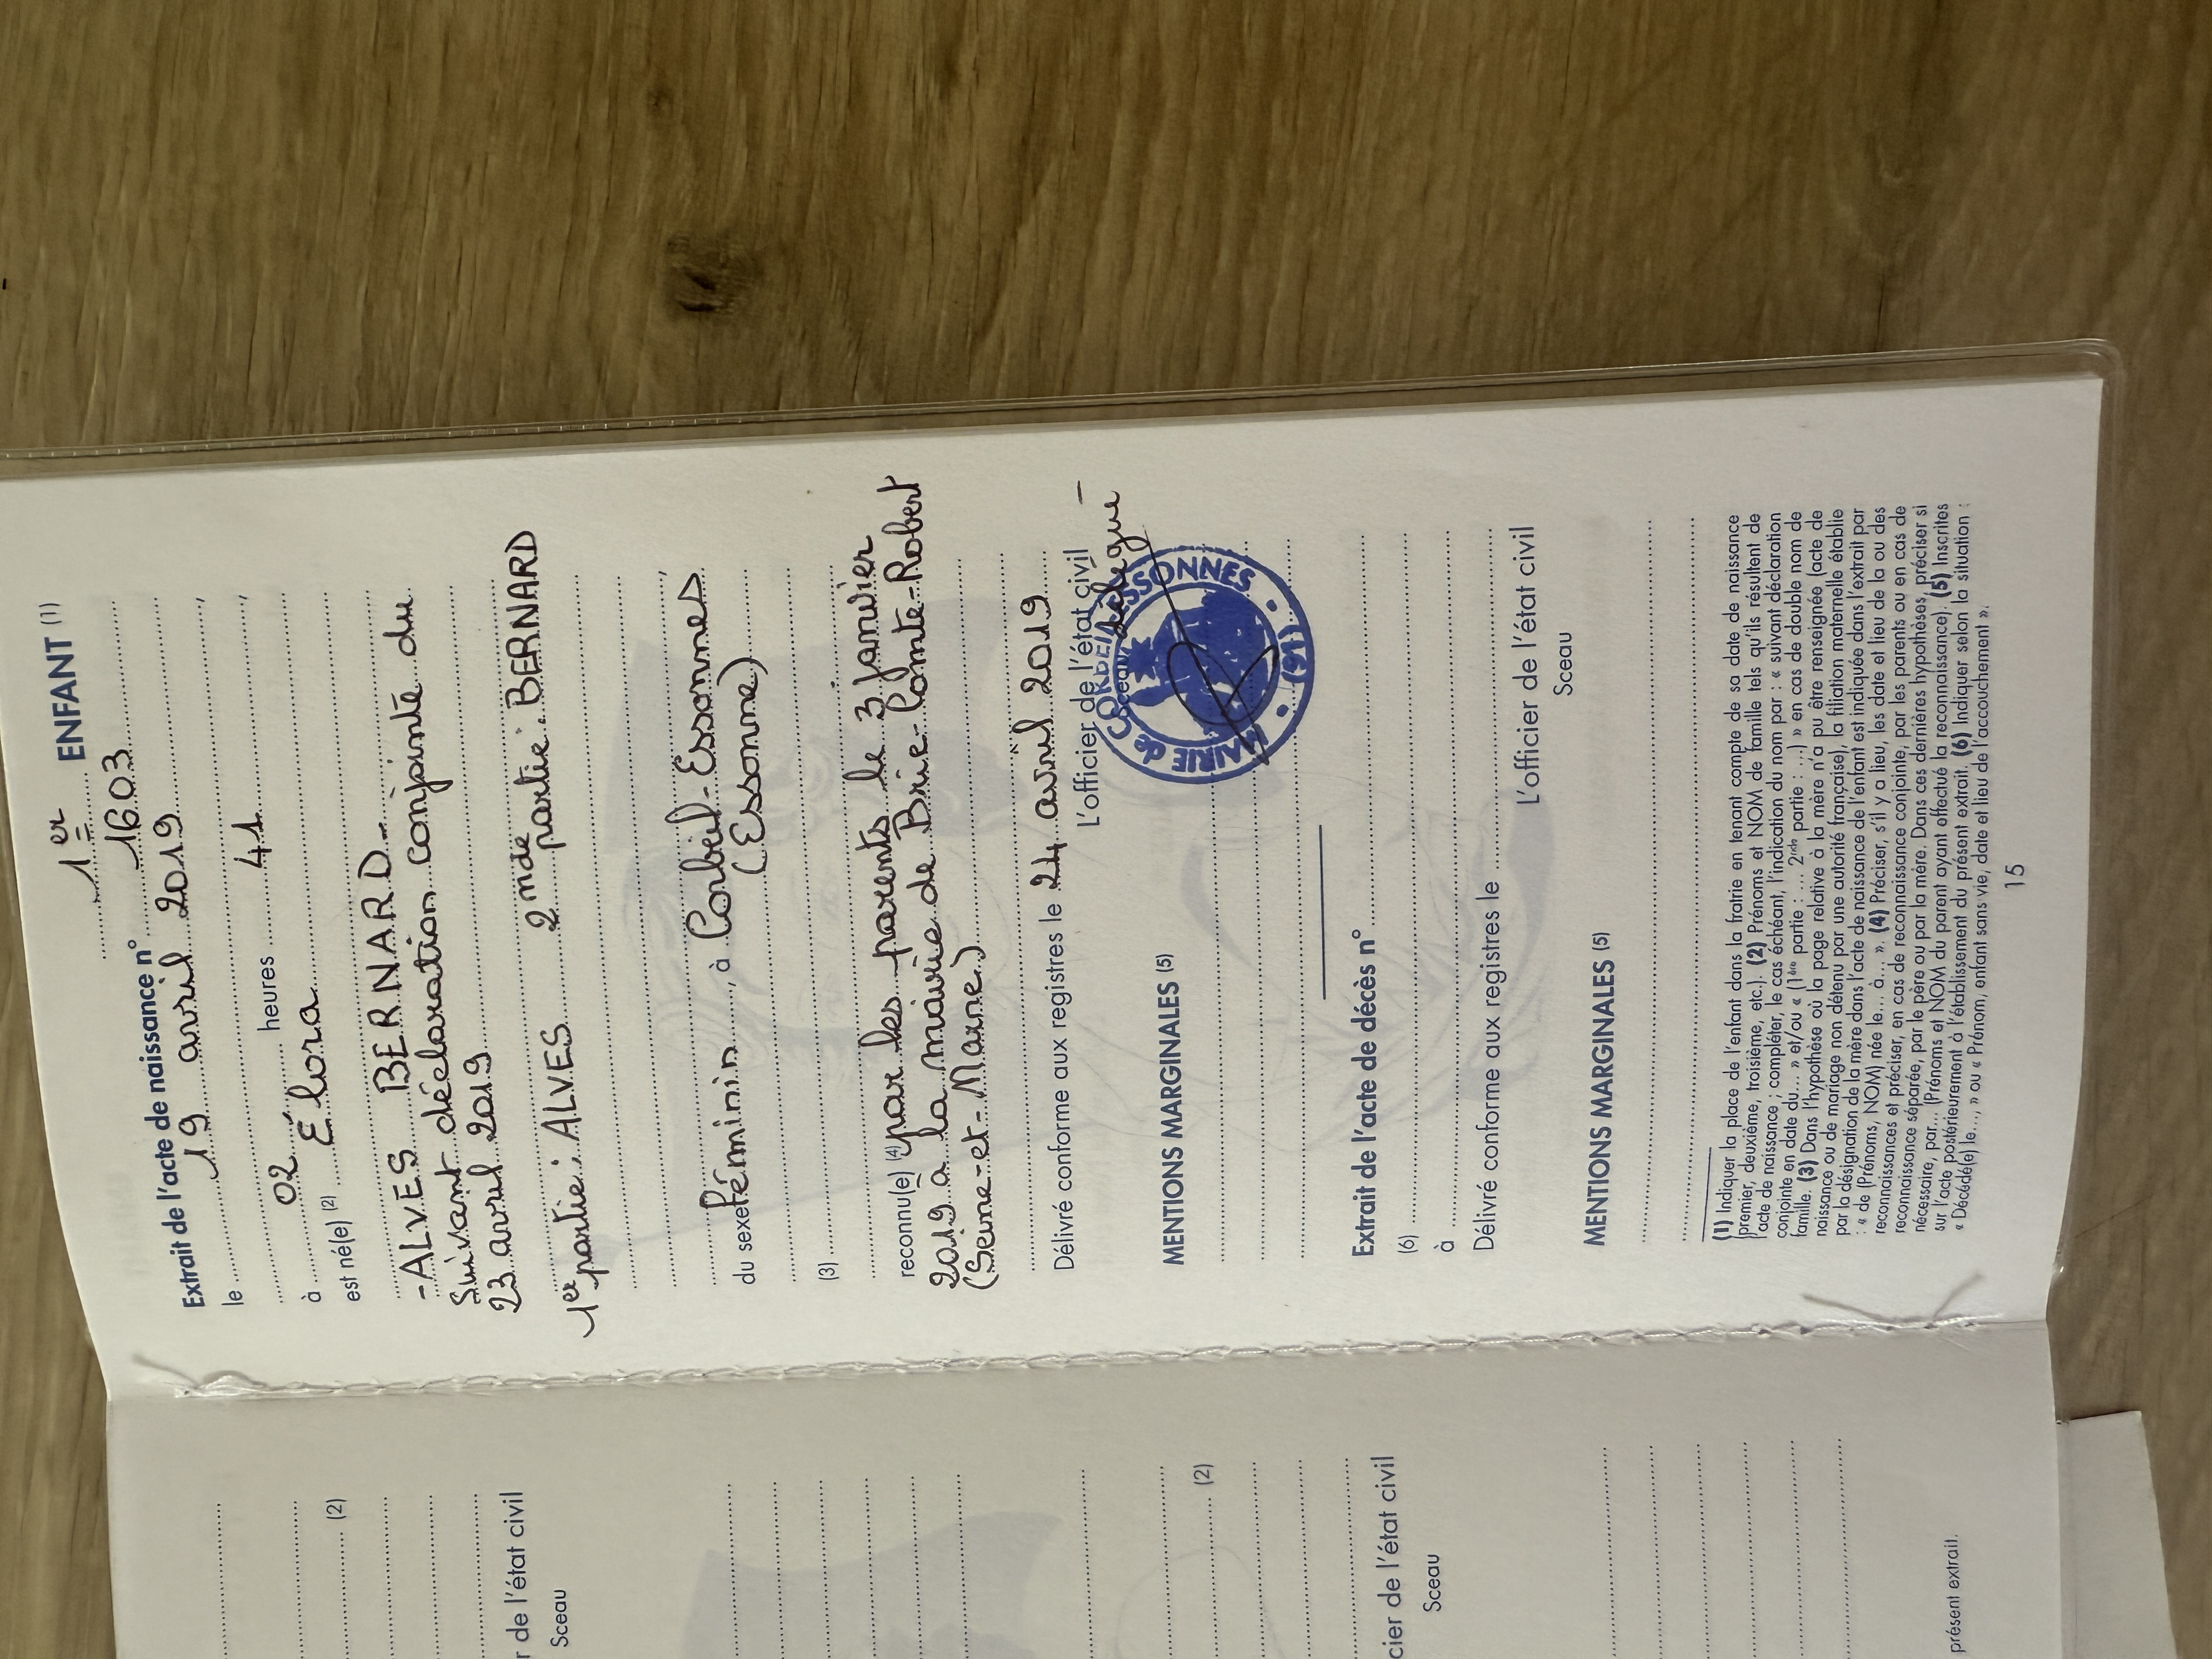 1er ENFANT (1)
Extrait de l'acte de naissance n° 1603
le 19 avril 2019
à 02 heures 41
est né(e) (2) Élora
- ALVES BERNARD -
Suivant déclaration conjointe du
23 avril 2019
1er partie : ALVES 2nde partie : BERNARD
du sexe féminin, à Corbeil-Essonnes
(Essonne)
(3)
reconnu(e) (4) par les parents le 3 janvier
2019 à la mairie de Brie-Comte-Robert
(Seine-et-Marne)
Délivré conforme aux registres le 24 avril 2019
L'officier de l'état civil
délégué
Sceau
MAIRIE de CORBEIL-ESSONNES
(91)
MENTIONS MARGINALES (5)
Extrait de l'acte de décès n°
(6)
à
Délivré conforme aux registres le
L'officier de l'état civil
Sceau
MENTIONS MARGINALES (5)
(1) Indiquer la place de l'enfant dans la fratrie en tenant compte de sa date de naissance
(premier, deuxième, troisième, etc.). (2) Prénoms et NOM de famille tels qu'ils résultent de
l'acte de naissance ; compléter, le cas échéant, l'indication du nom par : « suivant déclaration
conjointe en date du... » et/ou « (1ère partie : ... 2nde partie : ...) » en cas de double nom de
famille. (3) Dans l'hypothèse où la page relative à la mère n'a pu être renseignée (acte de
naissance ou de mariage non détenu par une autorité française), la filiation maternelle établie
par la désignation de la mère dans l'acte de naissance de l'enfant est indiquée dans l'extrait par
: « de (Prénoms, NOM) née le... à... ». (4) Préciser, s'il y a lieu, les date et lieu de la ou des
reconnaissances et préciser, en cas de reconnaissance conjointe, par les parents ou en cas de
reconnaissance séparée, par le père ou par la mère. Dans ces dernières hypothèses, préciser si
nécessaire, par... (Prénoms et NOM du parent ayant effectué la reconnaissance). (5) Inscrites
sur l'acte postérieurement à l'établissement du présent extrait. (6) Indiquer selon la situation :
« Décédé(e) le..., » ou « Prénom, enfant sans vie, date et lieu de l'accouchement ».
15
(2)
r de l'état civil
Sceau
(2)
cier de l'état civil
Sceau
présent extrait.